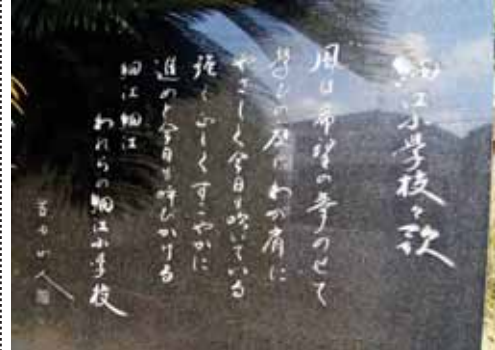 細江小學校々歌
風は希望の夢のせて
學びの庭にわが肩に
やさしく今日も吹いている
強く正しくすこやかに
進めと今日も呼びかける
細江細江
われらの細江小学校